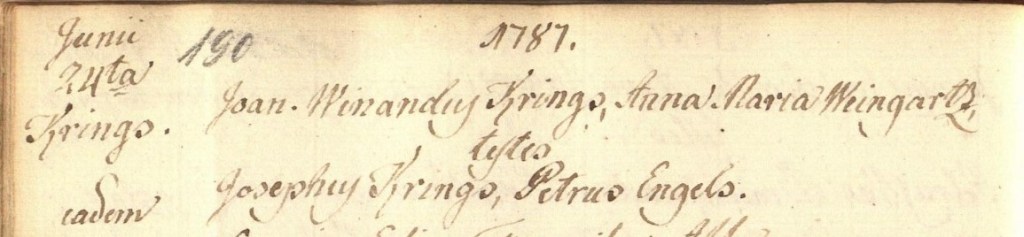 Junii 190 1787.
24ta
Joan. Winandus Krings, Anna Maria Weingartz,
Krings.
testes
Josephus Krings, Petrus Engels.
eadem